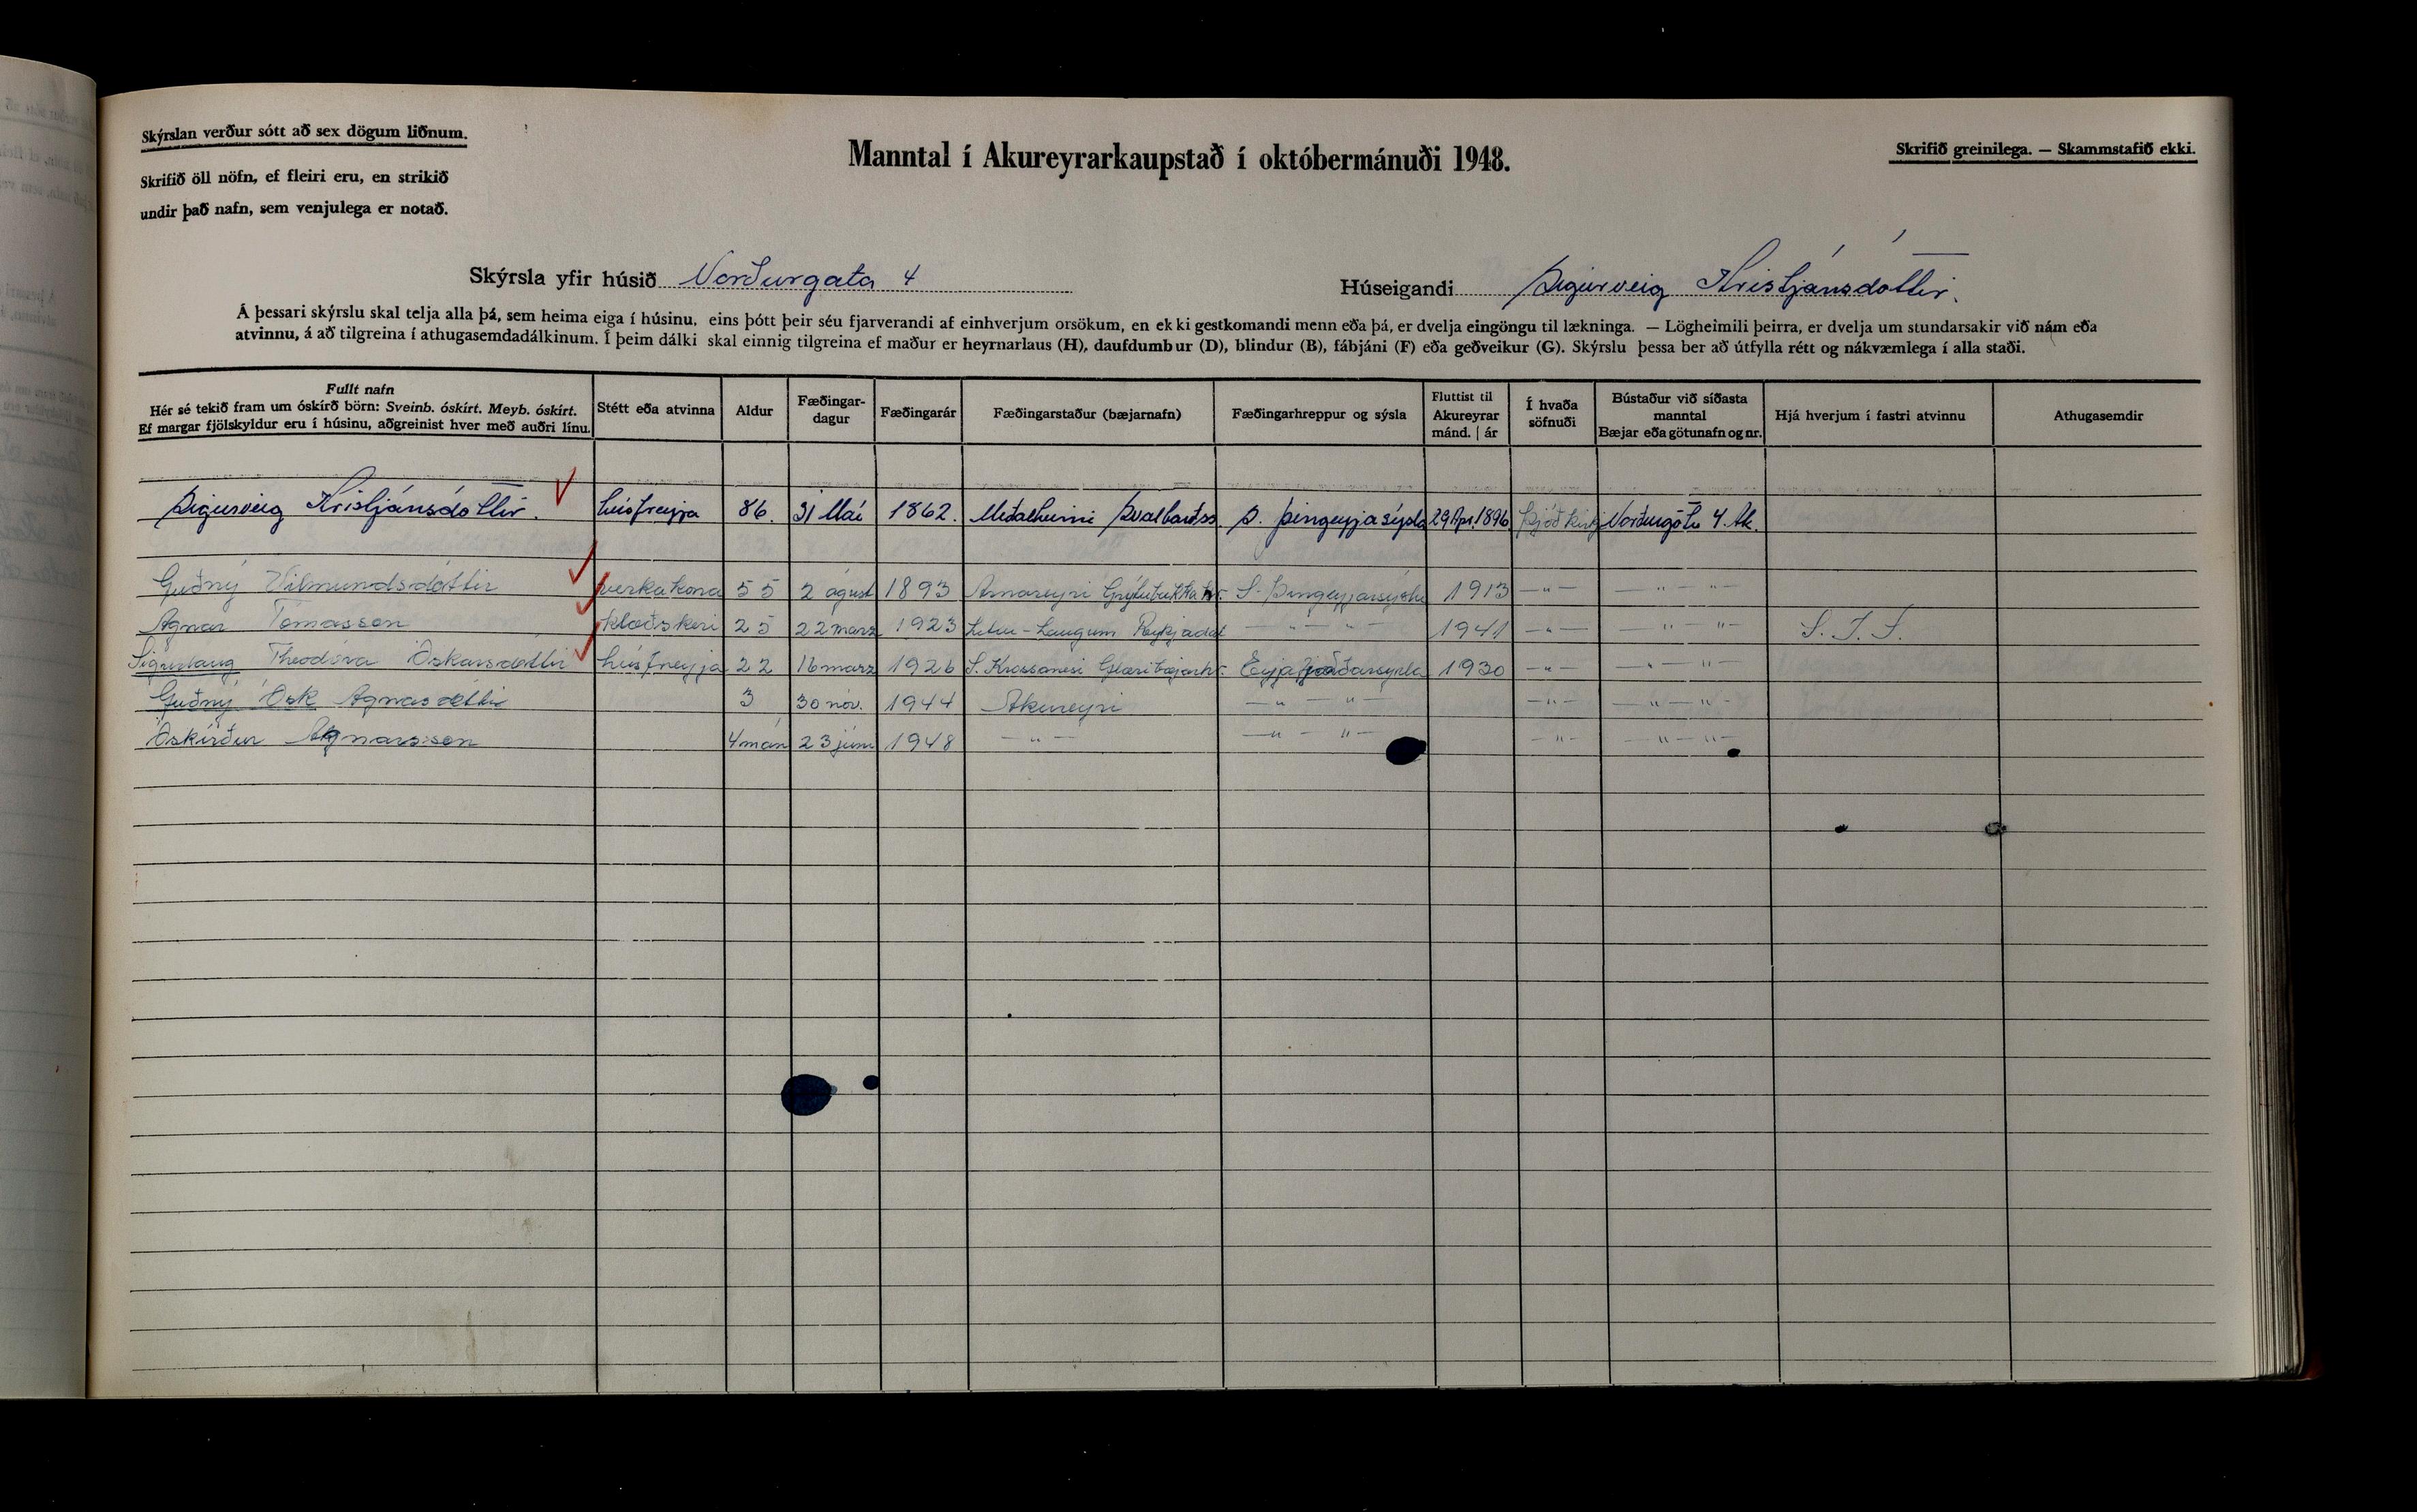 Skýrslan verður sótt að sex dögum liðnum.
Skrifið öll nöfn, ef fleiri eru, en strikið
undir það nafn, sem venjulega er notað.
Manntal í Akureyrarkaupstað í októbermánuði 1948.
Skrifið greinilega. — Skammstafið ekki.
Skýrsla yfir húsið Norðurgata 4
Húseigandi Sigurveig Kristjánsdóttir.
Á þessari skýrslu skal telja alla þá, sem heima eiga í húsinu, eins þótt þeir séu fjarverandi af einhverjum orsökum, en ekki gestkomandi menn eða þá, er dvelja eingöngu til lækninga. — Lögheimili þeirra, er dvelja um stundarsakir við nám eða
atvinnu, á að tilgreina í athugasemdadálkinum. Í þeim dálki skal einnig tilgreina ef maður er heyrnarlaus (H), daufdumbur (D), blindur (B), fábjáni (F) eða geðveikur (G). Skýrslu þessa ber að útfylla rétt og nákvæmlega í alla staði.
Fullt nafn
Hér sé tekið fram um óskírð börn: Sveinb. óskírt. Meyb. óskírt.
Ef margar fjölskyldur eru í húsinu, aðgreinist hver með auðri línu.
Stétt eða atvinna
Aldur
Fæðingar-
dagur
Fæðingarár
Fæðingarstaður (bæjarnafn)
Fæðingarhreppur og sýsla
Fluttist til
Akureyrar
mánd. | ár
Í hvaða
söfnuði
Bústaður við síðasta
manntal
Bæjar eða götunafn og nr.
Hjá hverjum í fastri atvinnu
Athugasemdir
Sigurveig Kristjánsdóttir. húsfreyja 86. 31 Maí 1862. Meðalheimi Svalbarðss S. þingeyjasýsla 29 Apr. 1896 Þjóðkirkj Norðurgötu 4. Ak.
Guðný Vilmundsdóttir verkakona 55 2 ágúst 1893 Arnareyri Grýtubakkahr. S. Þingeyjarsýslu 1913 —"— —"—"—
Agnar Tómasson klæðskeri 25 22 marz 1923 Litlu-Laugum Reykjadal —"—"— 1941 —"— —"—"— S. Í. S.
Sigurlaug Theodóra Óskarsdóttir húsfreyja 22 16 marz 1926 S. Krossanesi Glæsibæjarhr. Eyjafjarðarsýslu 1930 —"— —"—"—
Guðný Ósk Agnarsdóttir 3 30 nóv. 1944 Akureyri —"—"— —"— —"—"—
Óskírður Agnarsson 4 mán 23 júní 1948 —"— —"—"— —"— —"—"—